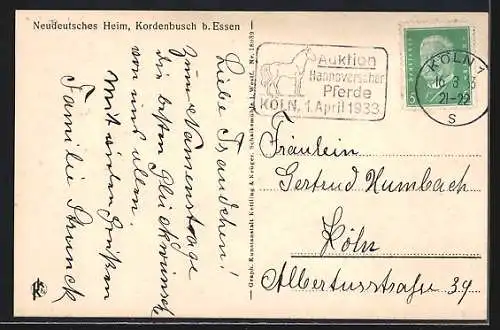 Neudeutsches Heim, Kordenbusch b. Essen
Liebe Traudchen!
Zum Namenstage
die besten Glückwünsche
von uns allen.
Mit vielen Grüßen
Familie Strunck
Graph. Kunstanstalt Kettling & Krüger, Schalksmühle i. Westf. Nr.
Auktion
Hannoverscher
Pferde
KÖLN, 1. April 1933
KÖLN 1
16 3 33
21-22
S
5
Fräulein
Gertrud Humbach
Köln
Albertusstraße 39